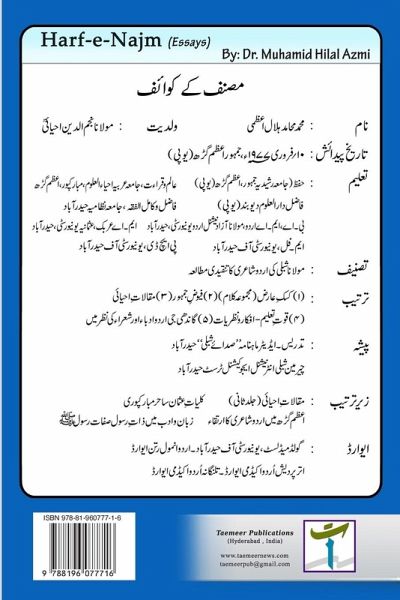 Harf-e-Najm (Essays)
By: Dr. Muhamid Hilal Azmi
مصنف کے کوائف
نام : محمد محامد ہلال اعظمی ولدیت : مولانا نجم الدین احیائی
تاریخ پیدائش : ۱۰/فروری ۱۹۷۷ء، جمہور اعظم گڑھ (یوپی)
تعلیم : حفظ (جامعہ رشیدیہ جمہور، اعظم گڑھ (یوپی) عالم و قراءت، جامعہ عربیہ احیاء العلوم، مبارکپور، اعظم گڑھ
فاضل دارالعلوم دیوبند (یوپی) فاضل و کامل الفقہ، جامعہ نظامیہ حیدرآباد
بی۔اے، ایم۔اے اردو، مولانا آزاد نیشنل اردو یونیورسٹی، حیدرآباد ایم۔اے عربک، عثمانیہ یونیورسٹی، حیدرآباد
ایم۔فل، یونیورسٹی آف حیدرآباد پی ایچ ڈی، یونیورسٹی آف حیدرآباد
تصنیف : مولانا شبلی کی اردو شاعری کا تنقیدی مطالعہ
ترتیب : (۱) کسک عارض (مجموعہ کلام) (۲) فیوض جمہور (۳) مقالات احیائی
(۴) قوت تعلیم-افکار و نظریات (۵) گاندھی جی اردو ادباء اور شعراء کی نظر میں
پیشہ : تدریس۔ ایڈیٹر ماہنامہ "صدائے شبلی" حیدرآباد
چیرمین شبلی انٹرنیشنل ایجوکیشنل ٹرسٹ حیدرآباد
زیر ترتیب : مقالات احیائی (جلد ثانی) کلیات عثمان ساحر مبارکپوری
اعظم گڑھ میں اردو شاعری کا ارتقاء زبان و ادب میں ذات رسول صفات رسول ﷺ
ایوارڈ : گولڈ میڈلسٹ، یونیورسٹی آف حیدرآباد۔ اردو انمول رتن ایوارڈ
اتر پردیش اُردو اکیڈمی ایوارڈ۔ تلنگانہ اُردو اکیڈمی ایوارڈ
ISBN 978-81-960777-1-6
9 788196 077716
Taemeer Publications
(Hyderabad , India)
www.taemeernews.com
taemeerpub@gmail.com